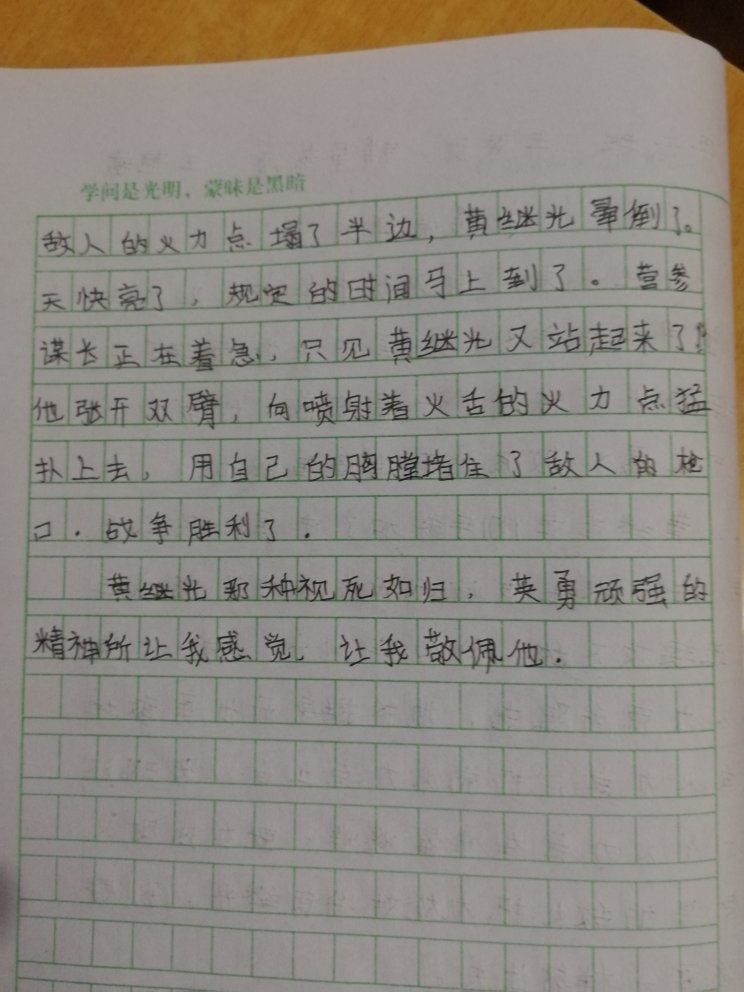 学问是光明，蒙昧是黑暗
敌人的火力点塌了半边，黄继光晕倒了。
天快亮了，规定的时间马上到了。营参
谋长正在着急，只见黄继光又站起来了！
他张开双臂，向喷射着火舌的火力点猛
扑上去，用自己的胸膛堵住了敌人的枪
口．战争胜利了．
黄继光那种视死如归，英勇顽强的
精神所让我感觉，让我敬佩他．